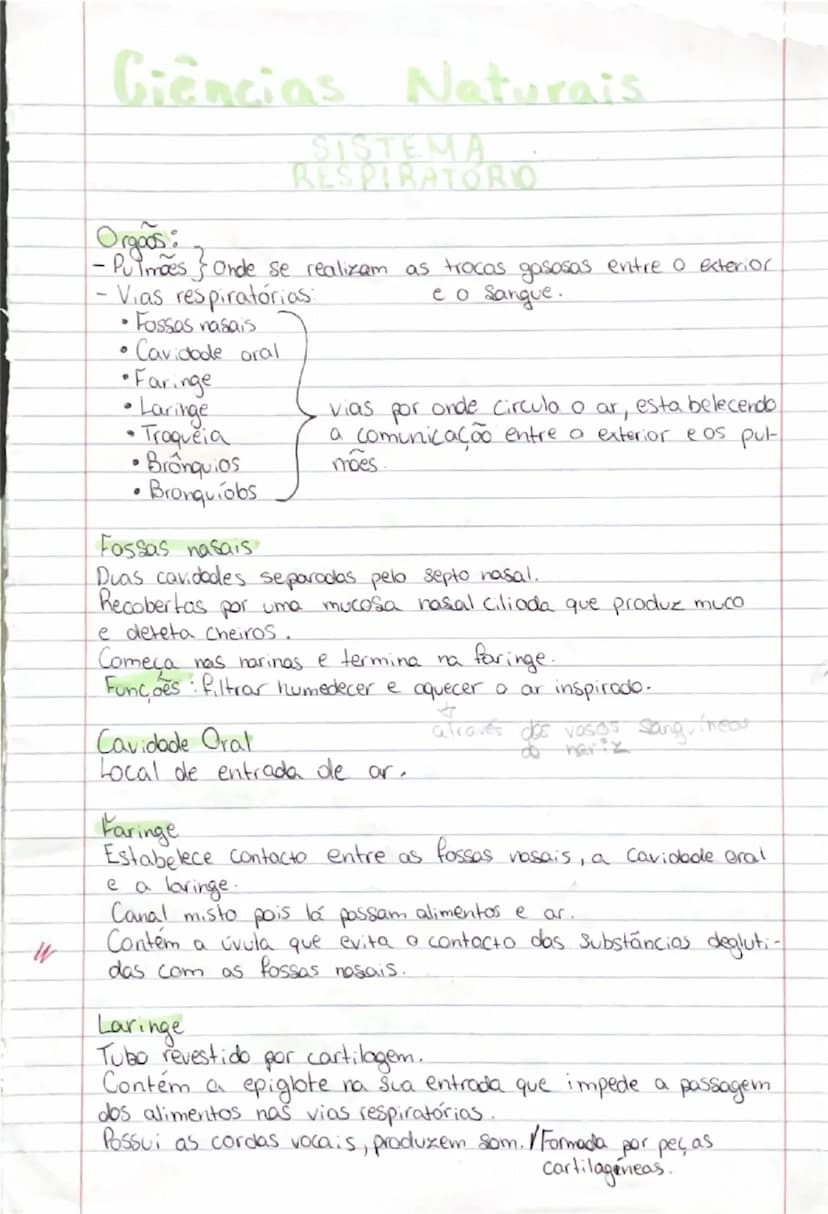 Ciências Naturais
SISTEMA
RESPIRATÓRIO
Orgãos:
- Pulmães } Onde se realizam as trocas gasosas entre o exterior
e o sangue.
- Vias respiratórias:
• Fossas nasais
• Cavidade oral
• Faringe
• Laringe
• Traquéia
• Brônquios
• Bronquíolos
vias por onde circula o ar, estabelecendo
a comunicação entre o exterior e os pul-
mões.
Fossas nasais
Duas cavidades separadas pelo septo nasal.
Recobertas por uma mucosa nasal ciliada que produz muco
e deteta cheiros.
Começa nas narinas e termina na faringe.
Funções: filtrar humedecer e aquecer o ar inspirado.
através dos vasos sanguíneos
do nariz
Cavidade Oral
Local de entrada de ar.
Faringe
Estabelece contacto entre as fossas nasais, a cavidade oral
e a laringe.
Canal misto pois lá passam alimentos e ar.
Contém a úvula que evita o contacto das substâncias degluti-
das com as fossas nasais.
Laringe
Tubo revestido por cartilagem.
Contém a epiglote na sua entrada que impede a passagem
dos alimentos nas vias respiratórias.
Possui as cordas vocais, produzem som. / Formada por peças
cartilagíneas.